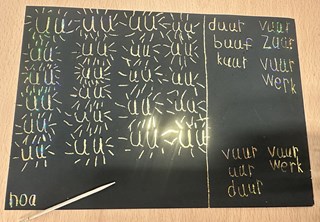 uu uu uu uu
uu uu uu uu
uu uu uu uu
uu uu uu uu
uu uu uu uu
uu uu
duur vuur
buur zuur
kuur vuur
werk
vuur vuur
uur werk
duur
noa